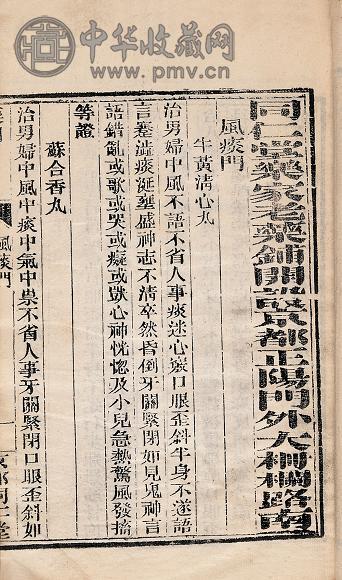 中华收藏网
www.pmv.cn
同仁堂藥家老藥鋪開設京都正陽門外大柵欄路南
風痰門
牛黃清心丸
治男婦中風不語不省人事痰迷心竅口眼歪斜半身不遂語
言蹇澁痰涎壅盛神志不清卒然昏倒牙關緊閉如見鬼神言
語錯亂或歌或哭或癡或獃心神恍惚及小兒急熱驚風發搐
等證
蘇合香丸
治男婦中風中痰中氣中祟不省人事牙關緊閉口眼歪斜如
風痰門
京都同仁堂